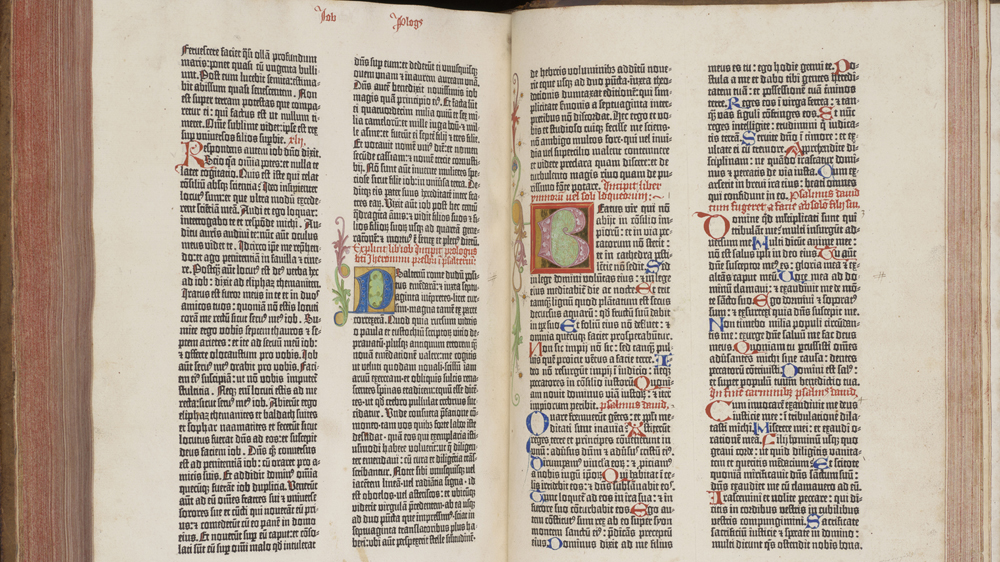 Job
Plogus
Fervescere faciet q̄si ollā profundum
maris: ponet quasi cū ungenta bulli-
unt. Post eum lucebit semita: estima-
bit abissum quasi senescentem. Non
est super terram potestas que compa-
retur ei: qui factus est ut nullum ti-
meret. Omne sublime videt: ipse est rex
sup universos filios supbie. xlij
Respondens autem iob dño dixit.
Scio qa omnia potes: et nulla te
latet cogitatio. Quis est iste qui celat
cōsilium absq; sciencia? Ideo insipienter
locutus sum: et que ultra modū excede-
rent sciētiā meā. Audi et ego loquar:
interrogabo te et respōde michi. Au-
ditu auris audivi te: nūc aūt oculus
meus videt te. Idcirco ipse me reprehen-
do: et ago penitentiā in favilla et cine-
re. Postq̄ aūt locut⁹ est dn̄s verba hec
ad iob: dixit ad eliphaz themaniten.
Iratus est furor meus in te et in duos
amicos tuos: quoniā nō estis locuti
corā me rectū sicut serv⁹ me⁹ iob. Su-
mite ergo vobis septem thauros et se-
ptem arietes: et ite ad servū meū iob:
et offerte olocaustum pro vobis. Iob
aūt serv⁹ me⁹ orabit pro vobis. Faci-
em ei⁹ suscipiā: ut nō vobis imputet̄
stulticia. Neq; em̄ locuti estis ad me
recta: sicut serv⁹ me⁹ iob. Abierūt ergo
eliphaz themanites et baldach suites
et sophar naamatites et fecerūt sicut
locutus fuerat dn̄s ad eos: et suscepit
dn̄s faciem iob. Dn̄s q̄; conversus
est ad penitentiā iob: cū oraret pro a-
micis suis. Et addidit dn̄s omnia
quecūq; fuerāt iob duplicia. Venerūt
aūt ad eū om̄es fratres sui et universe
sorores sue et cūcti qui noverāt eū pri-
us: et comederūt cū eo panē in domo
ei⁹: et moverūt sup eū caput: et cōso-
lati sūt eū sup om̄i malo q̄d intulerat
dn̄s sup eum: et dederūt ei unusquisq;
ovem unam et inaurem auream unā.
Dn̄s aūt benedixit novissimis iob
magis quā principio ei⁹. Et facta sūt
ei quatuordecim milia oviū et sex mi-
lia camelorū: et mille iuga boū et mil-
le asine: et fuerūt ei septē filij et tres filie.
Et vocavit nomē uni⁹ diē: et nomen
secūde cassiam: et nomē tercie cornusti-
bij. Nō sunt aūt invente mulieres spe-
ciose sicut filie iob: in universa terra. De-
ditq; eis pater suus hereditatē inter fra-
tres eaz. Vixit aūt iob post hec centū
q̄draginta ānis: et vidit filios suos et fi-
lios filioz suoz usq; ad quartā gene-
rationē: et mortu⁹ ē senex et plen⁹ dierū.
Explicit lib iob Incipit prologus
bti Iheronimi presbiteri ī psalteriū
Psalterium rome dudum posi-
tus emēdarā: et iuxta septu-
aginta inp̄retes-licet cur-
sim-magna tamē ex parte
correxerā. Quod quia rursum videtis
o paula et eustochiū scriptoz vicio de-
pravatū-plusq; antiquum errorem q̄
novam emendationē valere: me cogitis
ut veluti quodam novali-scissū iam
arvum exerceam-et obliquis sulcis rena-
scentes spinas eradicem: equū esse dicē-
tes-ut q̄d crebro pullulat crebrius suc-
cidatur. Unde consueta p̄fatione cō-
moneo-tam vos quibz forte labor iste
desudat-quā eos qui exemplaria istī-
usmodi habere voluerīt: ut q̄ diligen-
ter emendavi: cū cura et diligētia trās-
scribantur. Notet sibi unusquisq; vel
iacentem lineā-vel radiātia signa-id
est obelos-vel asteriscos: et ubicūq;
viderit virgulā p̄cedentem-ab ea usq;
ad duo pūcta que impressim⁹-sciat in
septuaginta translatoribus plus ha-
beri: ubi aūt perspexerit stelle similitudinē-
de hebreis voluminibz additū nove-
rit eque usq; ad duo pūcta-iuxta theo-
dotionis dumtaxat editionē: qui sim-
plicitate sermonis a septuaginta inter-
pretibus nō discordat. Hec ergo et vo-
bis et studioso cuiq; fecisse me sciens-
nō ambigo multos fore-qui vel invi-
dia vel supercilio malint contemnere
et videre preclara quam discere: et de
turbulento magis rivo quam de pu-
rissimo fōte potare. Incipit liber
ymnorū vel soliloquiorum:
Beatus vir qui nō
abiit in cōsilio im-
pioru: et in via pec-
catorum nō stetit:
et in cathedra pesti-
lētie nō sedit. Sed
in lege domini voluntas eius: et in lege
eius meditabit̄ die ac nocte. Et erit
tamq̄ lignū quod plātatum est secus
decursus aquarū: qd̄ fructū suū dabit
in tp̄e suo. Et foliū eius nō defluet: et
omnia quecūq; faciet prosperabūtur.
Non sic impij nō sic: sed tanq̄ pul-
vis quē proicit vētus a facie terre. Ideo
nō resurgūt impij ī iudicio: neq;
peccatores in cōsilio iustorū. Quoni-
am novit dominus viā iustorū: et iter
impiorum peribit. psalmus david.
Quare fremuerūt gētes: et pp̄li me-
ditati sunt inania? Astiterūt
reges terre et principes convenerunt in
unū: adūsus dn̄m et adūsus cristū ei⁹.
Dirumpam⁹ vincula eoz: et p̄iciam⁹
a nobis iugū ip̄oz. Qui habitat ī ce-
lis irridebit eos: et dn̄s subsānabit eos.
Tunc loquet̄ ad eos in ira sua: et in
furore suo cōturbabit eos. Ego au-
tem cōstitut⁹ sum rex ab eo super syon
montem sanctū ei⁹: p̄dicās preceptū
eius. Dominus dixit ad me filius
meus es tu: ego hodie genui te. Po-
stula a me et dabo tibi gentes heredi-
tatem tuā: et possessionē tuā terminos
terre. Reges eos ī virga ferrea: et tan-
q̄ vas figuli cōfringes eos. Et nūc
reges intelligite: erudimini q̄ iudica-
tis terrā. Servite dn̄o ī timore: et ex-
ultate ei cū tremore. Apprehendite di-
sciplinam: ne quādo irascatur domin⁹
et pereatis de via iusta. Cum exar-
serit in brevi ira eius: beati omnes
qui confidunt in eo. Psalmus david
cum fugeret a facie absolō filij sui.
Domine qd̄ multiplicati sunt qui
tribulāt me: multi insurgūt ad-
versum me. Multi dicūt aīe mee:
nō est salus ipsi in deo eius. Tu aūt
dn̄e susceptor me⁹ es: gloria mea et ex-
altās caput meū. Voce mea ad do-
minū clamavi: et exaudivit me de mō-
te sācto suo. Ego dormivi et soporat⁹
sum: et exsurrexi quia dn̄s suscepit me.
Non timebo milia populi circūdan-
tis me: exurge dn̄e salvū me fac deus
meus. Quoniam tu percussisti om̄es
adūsantes michi sine causa: dentes
peccatorū cōtrivisti. Domini est sal⁹:
et super populū tuum benedictio tua.
In finē carminibz psalm⁹ david.
Cum invocarē exaudivit me deus
iusticie mee: ī tribulatione dila-
tasti michi. Miserere mei: et exaudi o-
rationē meā. Filij hominū usq; quo
gravi corde: ut quid diligitis vanita-
tem et queritis mendacium? Et scitote
quoniā mirificavit dn̄s sanctum suū:
dn̄s exaudiet me cū clamavero ad eū.
Irascimini et nolite peccare: qui di-
citis in cordibus vestris in cubilibus
vestris compungimini. Sacrificate
sacrificiū iusticie et sperate in domino:
multi dicunt q̄s ostendit nobis bona.